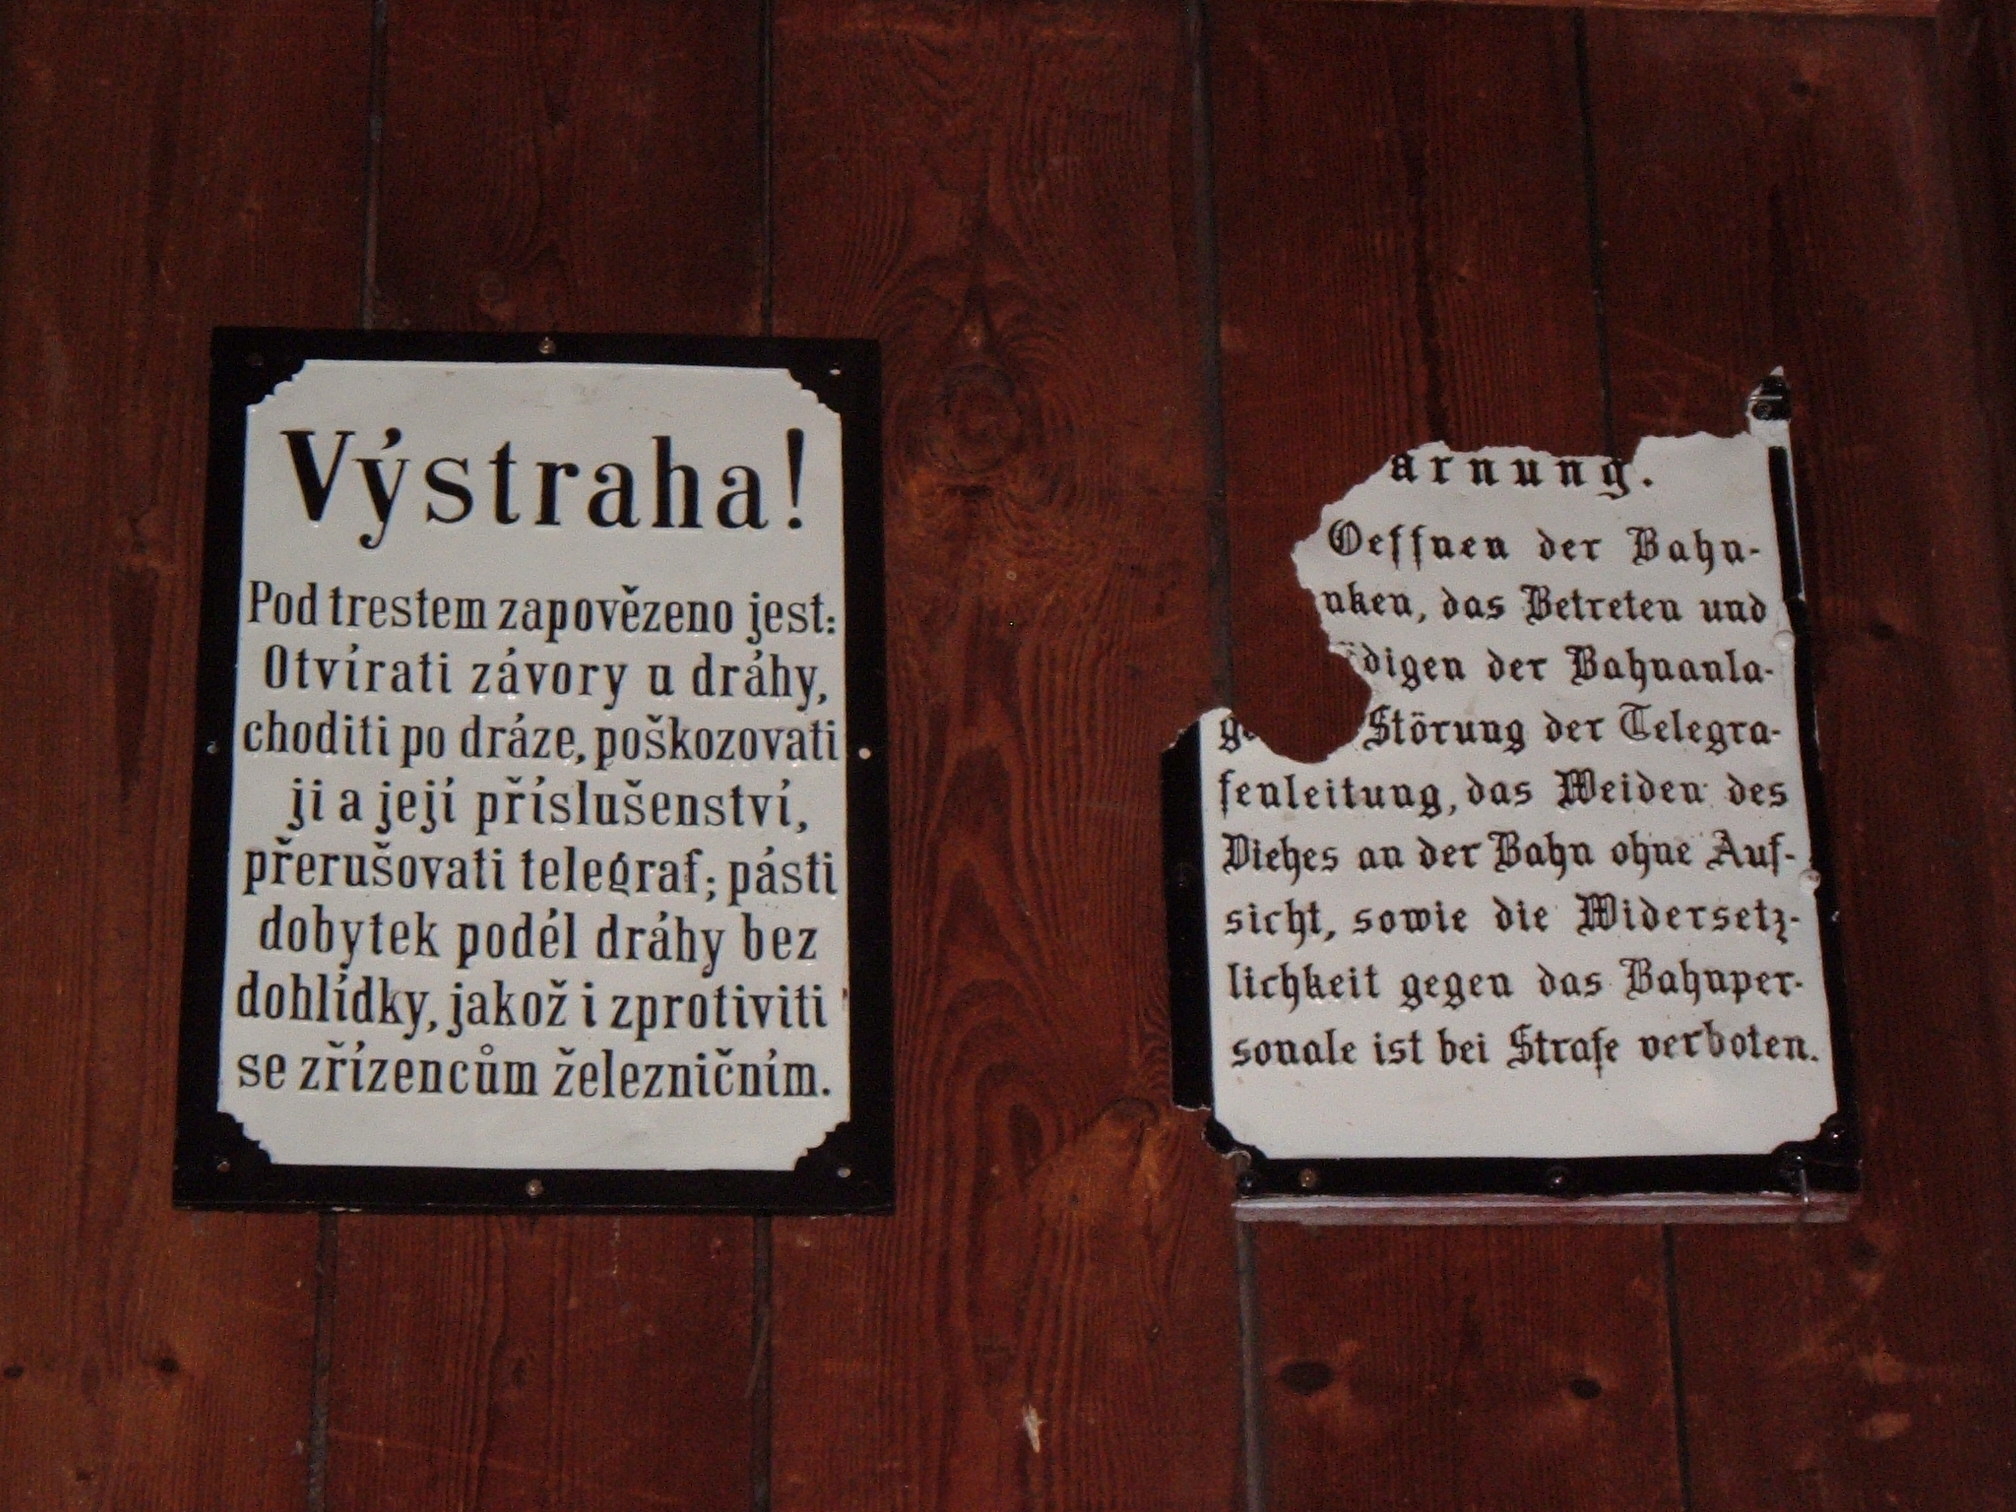 Výstraha!
Pod trestem zapovězeno jest:
Otvírati závory u dráhy,
choditi po dráze, poškozovati
ji a její příslušenství,
přerušovati telegraf; pásti
dobytek podél dráhy bez
dohlídky, jakož i zprotiviti
se zřízencům železničním.
arnung.
Oeffnen der Bahn-
nken, das Betreten und
digen der Bahnanla-
ge Störung der Telegra-
fenleitung, das Weiden des
Viehes an der Bahn ohne Auf-
sicht, sowie die Widersetz-
lichkeit gegen das Bahnper-
sonale ist bei Strafe verboten.